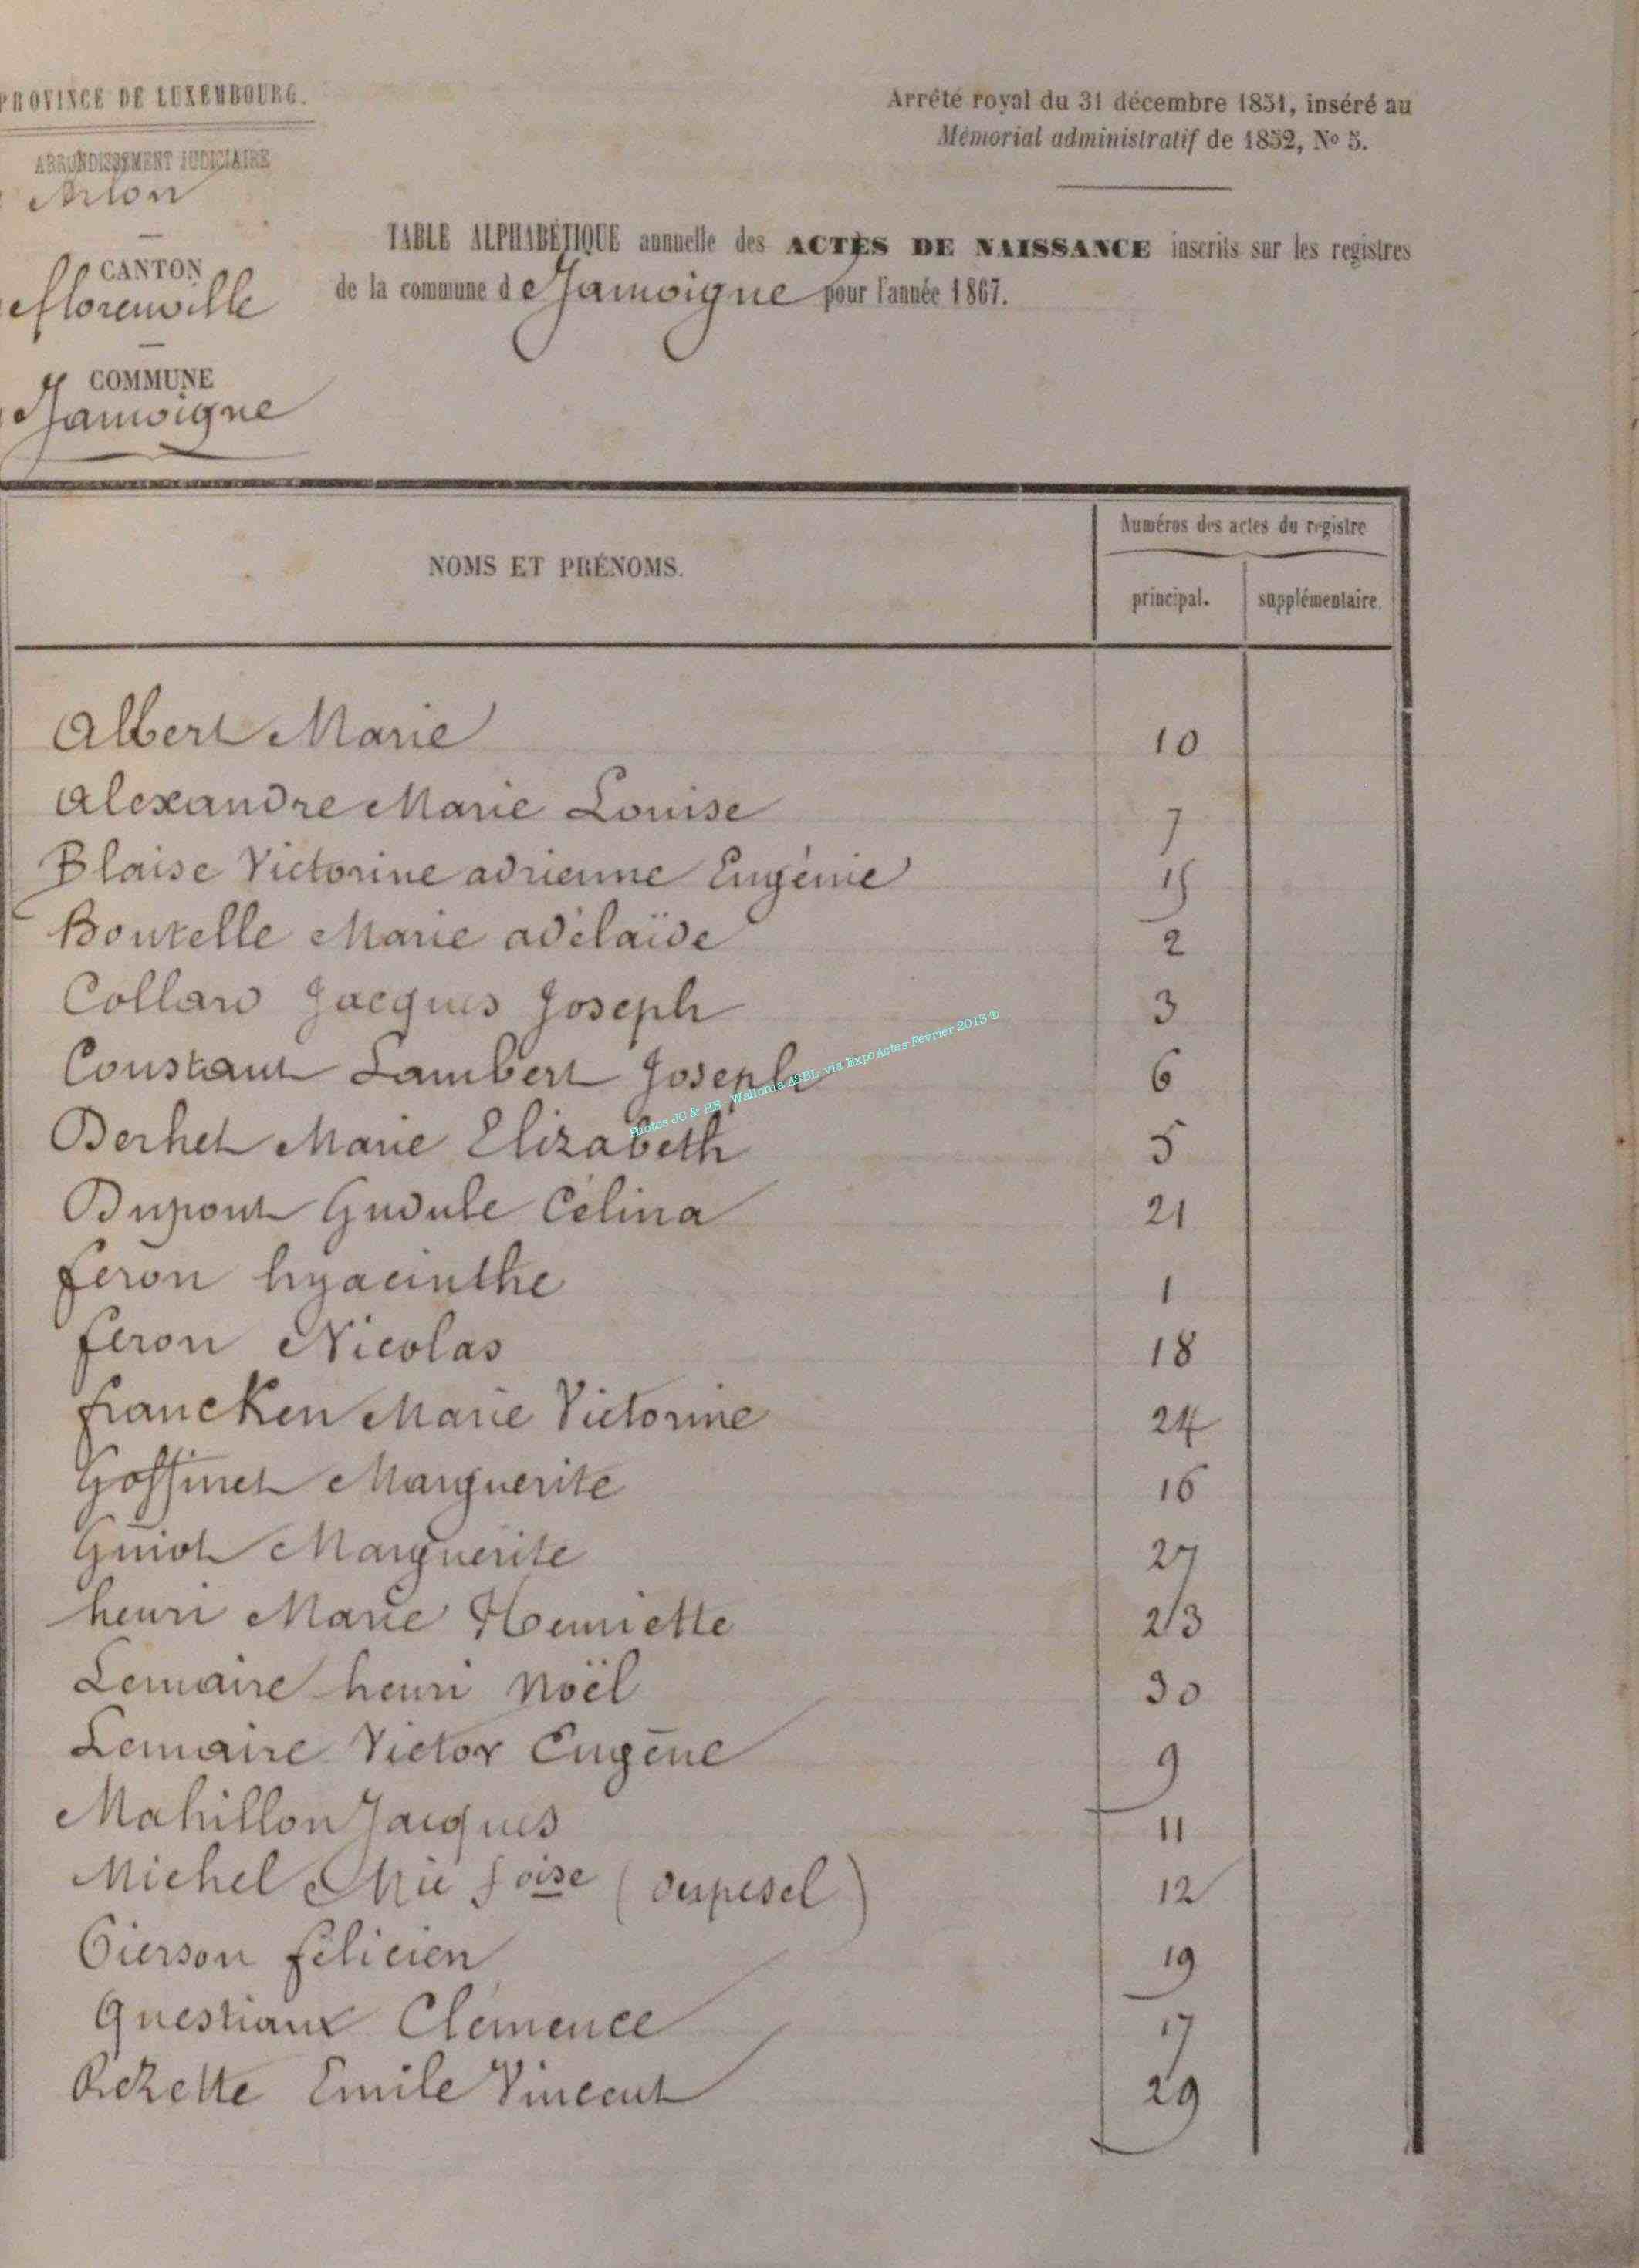 PROVINCE DE LUXEMBOURG.
ARRONDISSEMENT JUDICIAIRE
Arlon
CANTON
florenville
COMMUNE
Jamoigne
Arrêté royal du 31 décembre 1851, inséré au
Mémorial administratif de 1852, No 5.
TABLE ALPHABÉTIQUE annuelle des ACTES DE NAISSANCE inscrits sur les registres
de la commune de Jamoigne pour l'année 1867.
NOMS ET PRÉNOMS.
Numéros des actes du registre
principal. supplémentaire.
Albert Marie 10
Alexandre Marie Louise 7
Blaise Victorine adrienne Eugénie 15
Bourelle Marie adélaïde 2
Collard Jacques Joseph 3
Constant Lambert Joseph 6
Photos JC & HE - Wallonia ASBL via ExpoActes Février 2013 ®
Derhet Marie Elizabeth 5
Dupont Gudule Célina 21
feron hyacinthe 1
feron Nicolas 18
francken Marie Victorine 24
Goffinet Marguerite 16
Guiot Marguerite 27
henri Marie Henriette 23
Lemaire henri Noël 30
Lemaire Victor Eugène 9
Mahillon Jacques 11
Michel Mie foise 12
Pierson félicien 19
Questiaux Clémence 17
Rezette Emile Vincent 29